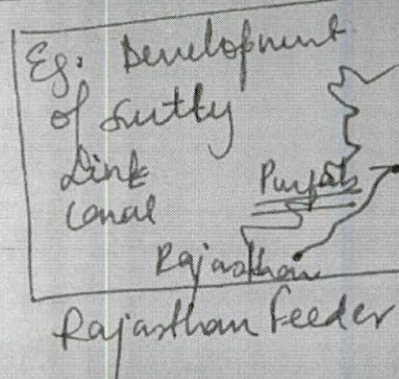 Eg: Development
of Sutly
Link
Canal
Punjab
Rajasthan
Rajasthan Feeder